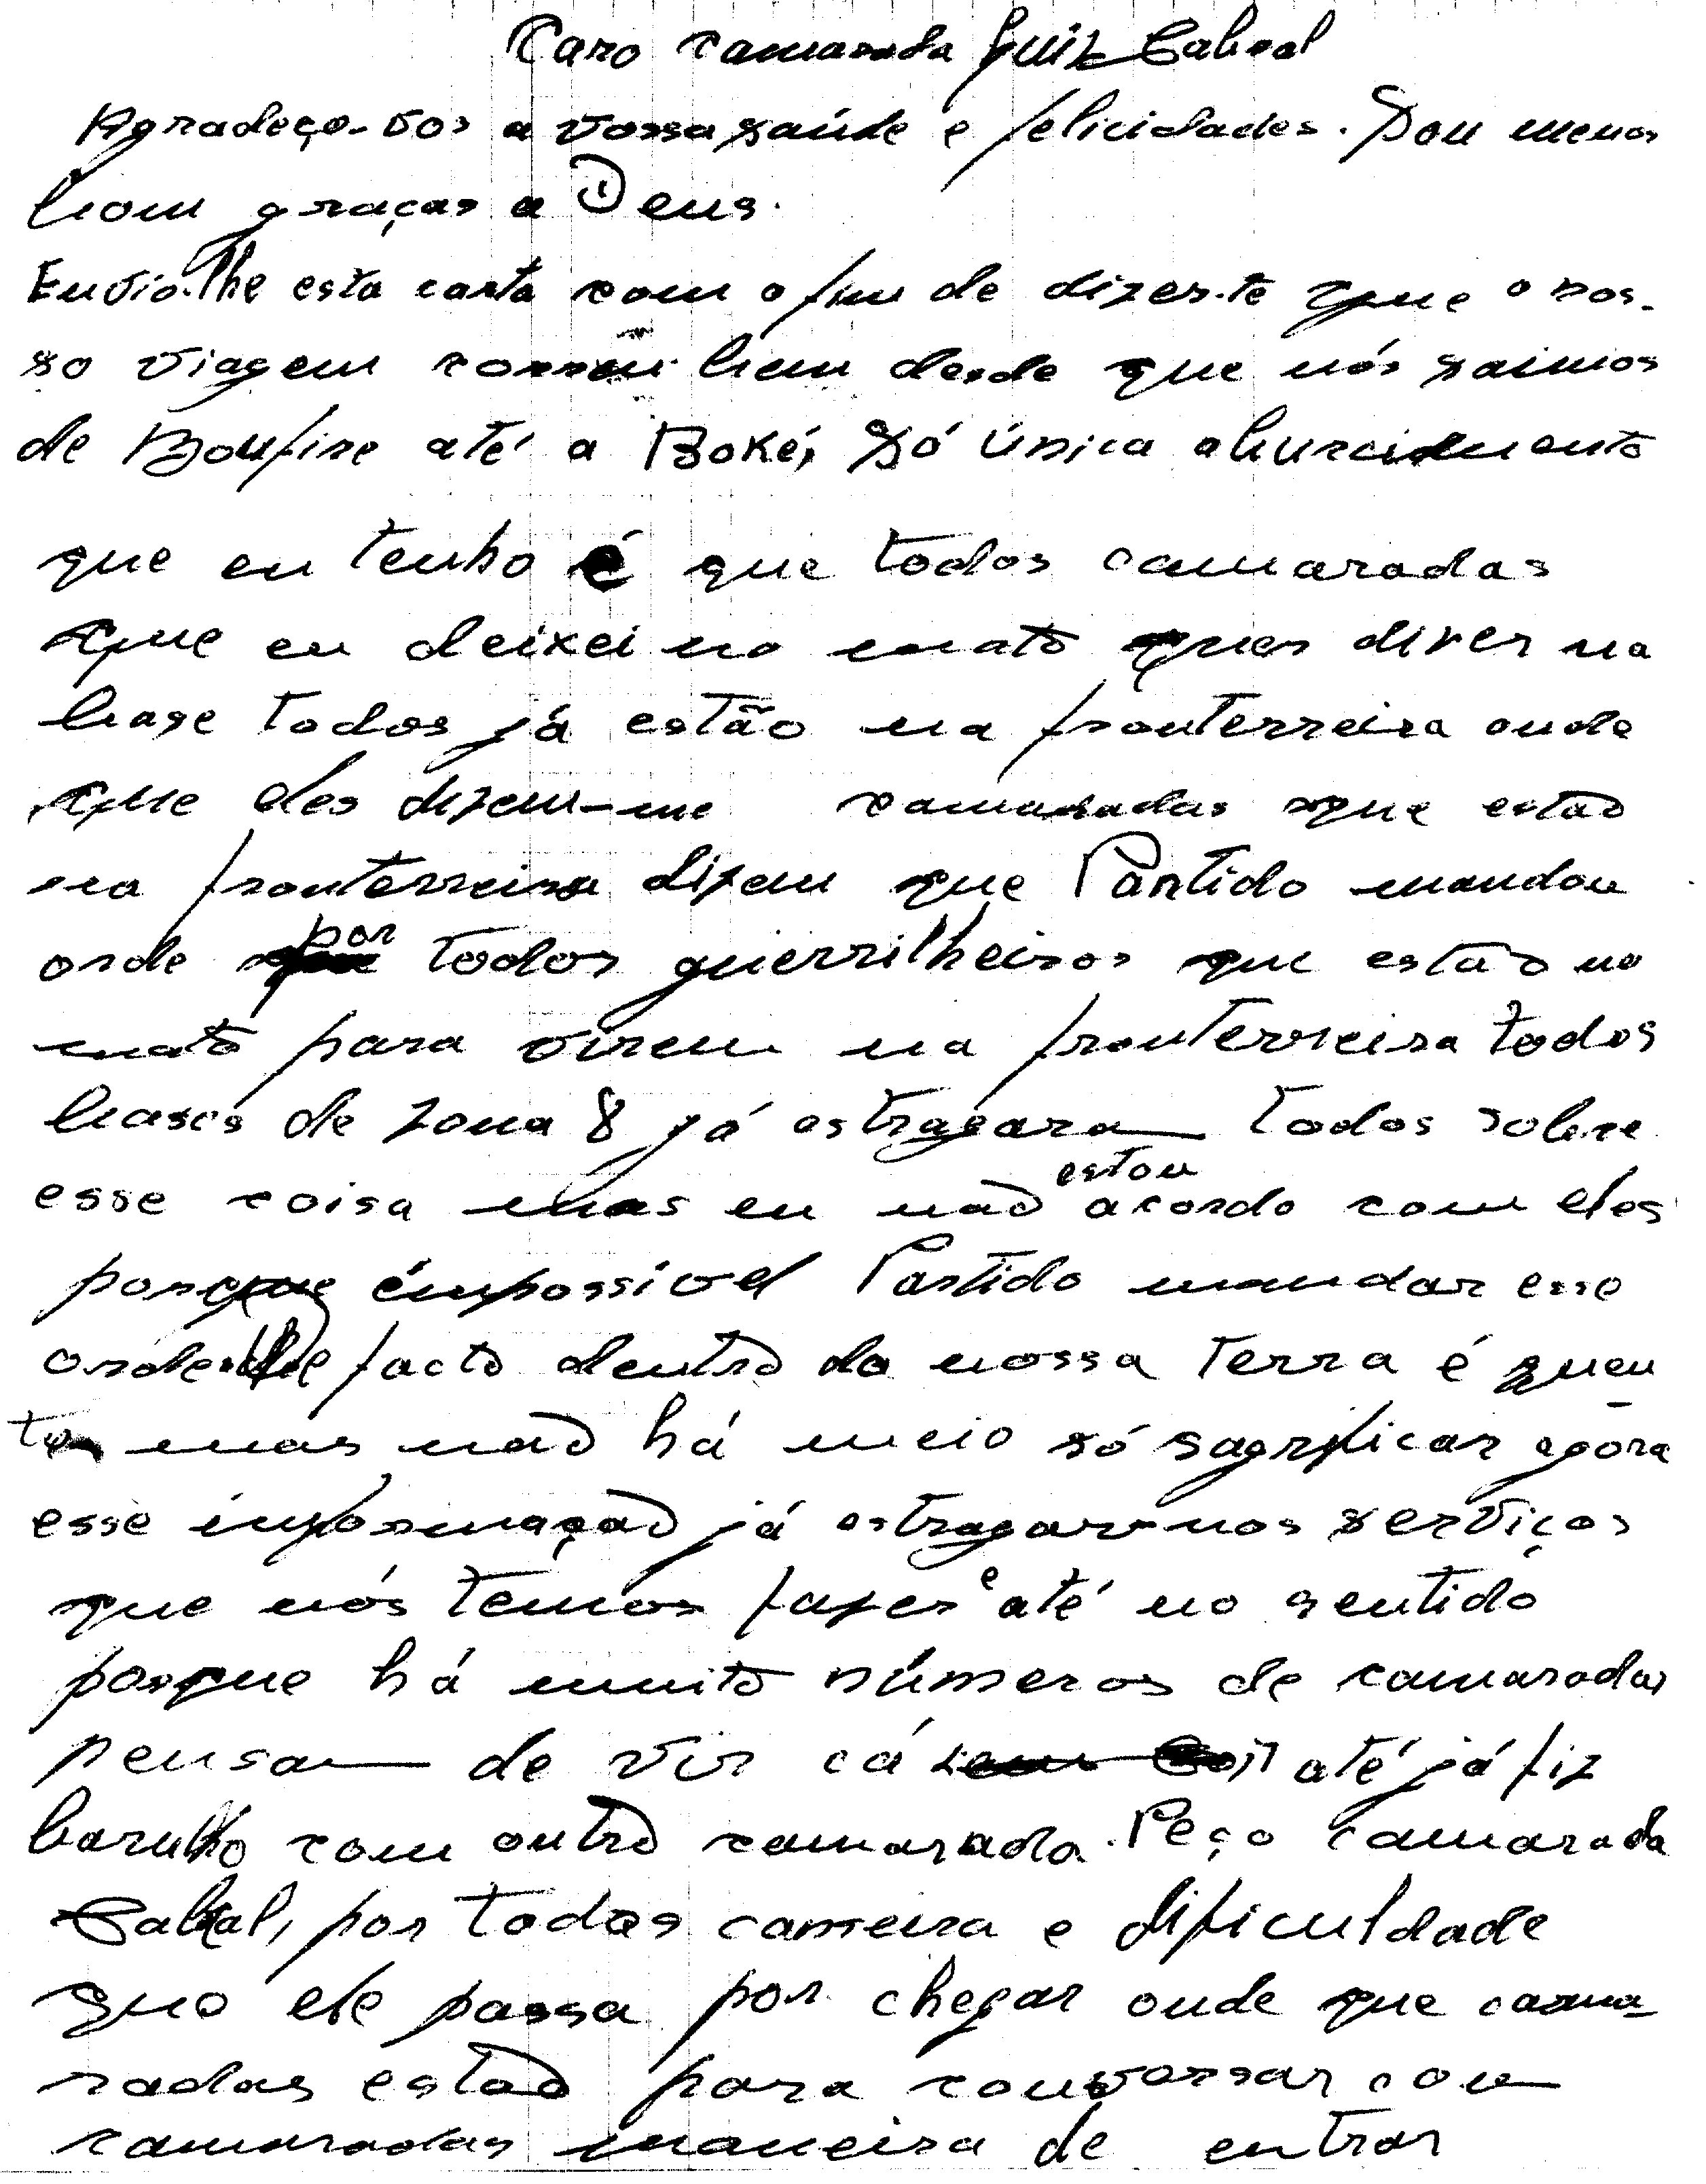 Caro camarada Luiz Cabral
Agradeço-vos a vossa saúde e felicidades. Sou menos
bom graças a Deus.
Envio-lhe esta carta com o fim de dizer-te que o nos-
so viagem correu bem desde que nós saimos
de Boufire até a Boké, Só única aburcidmento
que eu tenho é que todos camaradas
que eu deixei no mato quer diver na
base todos já estão na fronterreira onde
que eles dizem-me camadadas que estão
na fronterreira dizem que Partido mandou
orde por todos guerrilheiros que estão no
mato para virem na fronterreira todos
bases de zona 8 já estragara todos sobre
esse coisa mas eu não estou acordo com eles
porque émpossivel Partido mandar esse
orde de facto dentro da nossa terra é quen
to mas não há meio só sagrificar agora
esse informação já estragar-nos serviços
que nós temos fazer e até no sentido
porque há muito números de camaradas
pensa de vir cá até já fiz
barulho com outro camarada. Peço camarada
Cabral, por todas canseira e dificuldade
que ele passa por chegar onde que cama-
radas estão para convorsar com
camaradas maneira de entrar